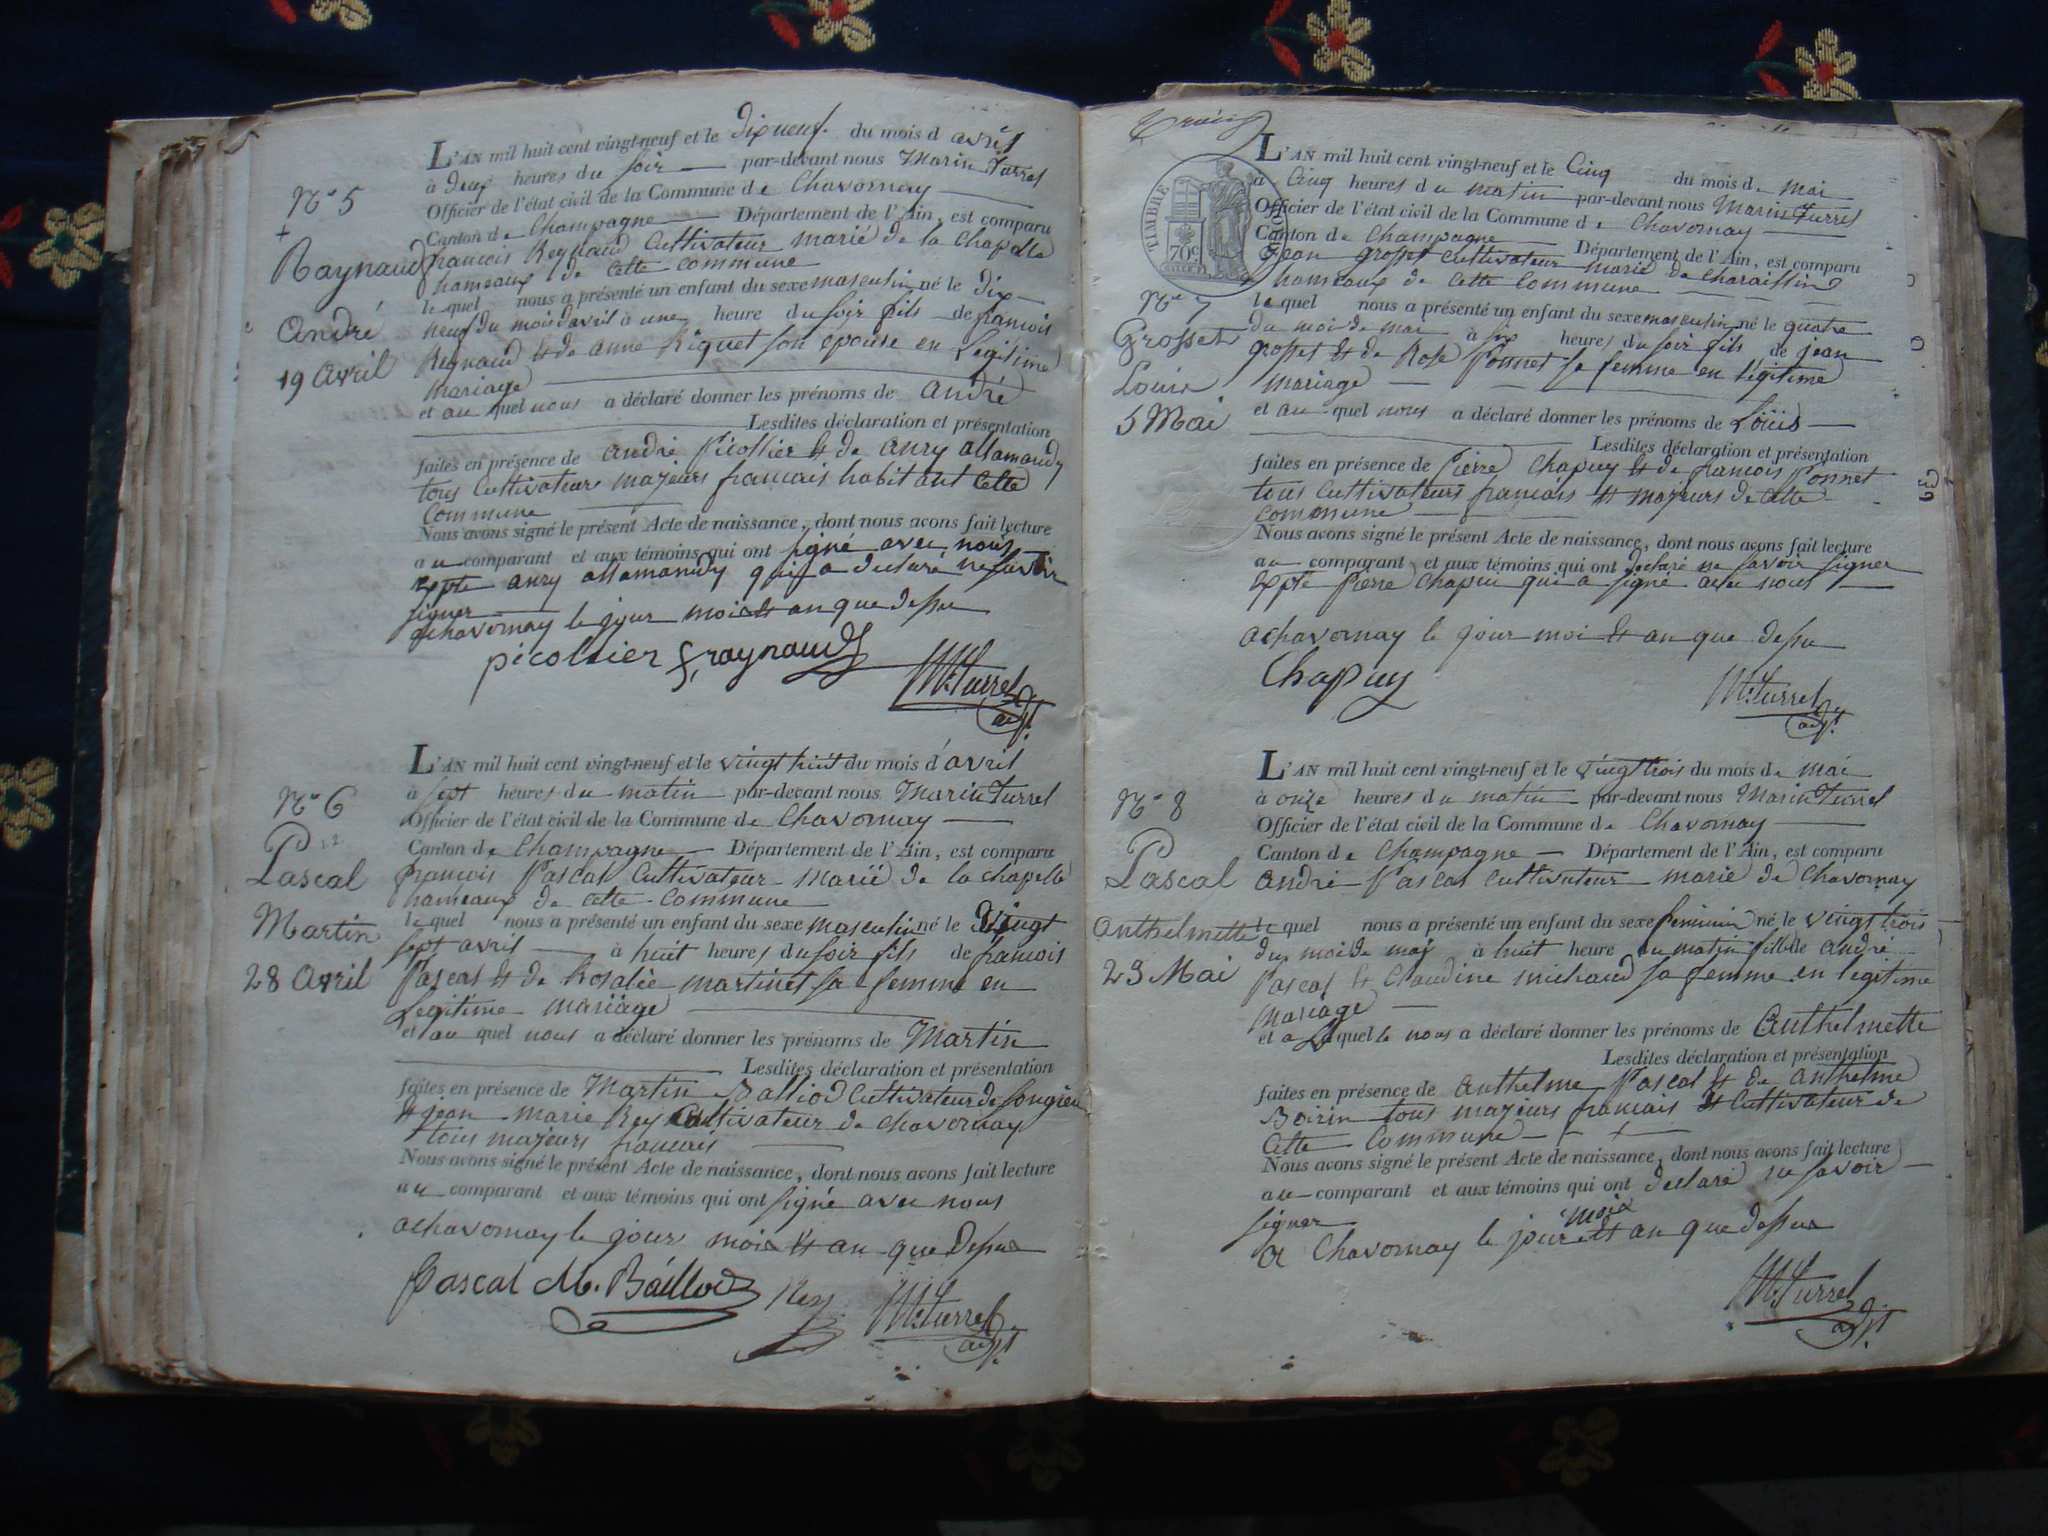 N° 5
+
Raynaud
André
19 avril
L'AN mil huit cent vingt-neuf et le dix neuf du mois d avril
à deux heures du soir par-devant nous Marin Turrel
Officier de l'état civil de la Commune de Chavornay
Canton de Champagne Département de l'Ain, est comparu
francois Reynaud Cultivateur marié de la Chapelle
hameaux de cette commune
le quel nous a présenté un enfant du sexe masculin né le dix
neuf du mois davril à une heure du soir fils de francois
Reynaud & de anne Riquet son epouse en Legitime
mariage
et au quel nous a déclaré donner les prénoms de andré
Lesdites déclaration et présentation
faites en présence de andré Picollier & de anry allamandy
tous Cultivateurs majeurs francais habitant Cette
Commune
Nous avons signé le présent Acte de naissance, dont nous avons fait lecture
au comparant et aux témoins qui ont signé avec nous
Expte anry allamandy qui a declaré ne savoir
signer
achavornay le jour mois & an que dessu
picollier f, raynaud
M. Turrel
adjt.
N° 6
Pascal
Martin
28 avril
L'AN mil huit cent vingt-neuf et le vingt huit du mois d'avril
à sept heures du matin par-devant nous Marin Turrel
Officier de l'état civil de la Commune de Chavornay
Canton de Champagne Département de l'Ain, est comparu
francois Pascal Cultivateur marié de la chapelle
hameaux de cette commune
le quel nous a présenté un enfant du sexe masculin né le vingt
sept avril à huit heures du soir fils de francois
Pascal & de Rosalie martinet sa femme en
Legitime mariage
et au quel nous a déclaré donner les prénoms de Martin
Lesdites déclaration et présentation
faites en présence de Martin Balliod Cultivateur de Songieu
& jean marie Rey Cultivateur de chavornay
tous majeurs francais
Nous avons signé le présent Acte de naissance, dont nous avons fait lecture
au comparant et aux témoins qui ont signé avec nous
achavornay le jour mois & an que Dessus
Pascal M. Baillod Rey M. Turrel
adjt.
TIMBRE
70c
N° 7
Grosset
Louis
5 Mai
L'AN mil huit cent vingt-neuf et le Cinq du mois de mai
à Cinq heures du matin par-devant nous Marin Turrel
Officier de l'état civil de la Commune de Chavornay
Canton de Champagne Département de l'Ain, est comparu
Jean grosset Cultivateur marié de Charaillin
hameaux de Cette Commune
le quel nous a présenté un enfant du sexe masculin né le quatre
du moi de mai à six heures du soir fils de jean
grosset & de Rose Ponnet sa femme en légitime
mariage
et au quel nous a déclaré donner les prénoms de Loüis
Lesdites déclaration et présentation
faites en présence de Pierre Chapuy & de francois Ponnet
tous Cultivateurs francais & majeurs de Cette
Commune
Nous avons signé le présent Acte de naissance, dont nous avons fait lecture
au comparant et aux témoins qui ont declaré ne savoir signer
Expté Pierre Chapui qui a signé avec nous
achavornay le jour moi & an que dessu
Chapuy
M. Turrel
adjt.
N° 8
Pascal
Anthelmette
23 Mai
L'AN mil huit cent vingt-neuf et le vingt trois du mois de mai
à onze heures du matin par-devant nous Marin Turrel
Officier de l'état civil de la Commune de Chavornay
Canton de Champagne Département de l'Ain, est comparu
André Pascal Cultivateur marié de Chavornay
le quel nous a présenté un enfant du sexe feminin né le vingt trois
du moi de mai à huit heure du matin fille de andré
Pascal & Claudine michaud sa femme en legitime
mariage
et a La quelle nous a déclaré donner les prénoms de Anthelmette
Lesdites déclaration et présentation
faites en présence de Anthelme Pascal & de Anthelme
Boirin tous majeurs francais & Cultivateur de
Cette Commune
Nous avons signé le présent Acte de naissance, dont nous avons fait lecture
au comparant et aux témoins qui ont declaré ne savoir
signer
a Chavornay le jour mois & an que dessus
M. Turrel
adjt.